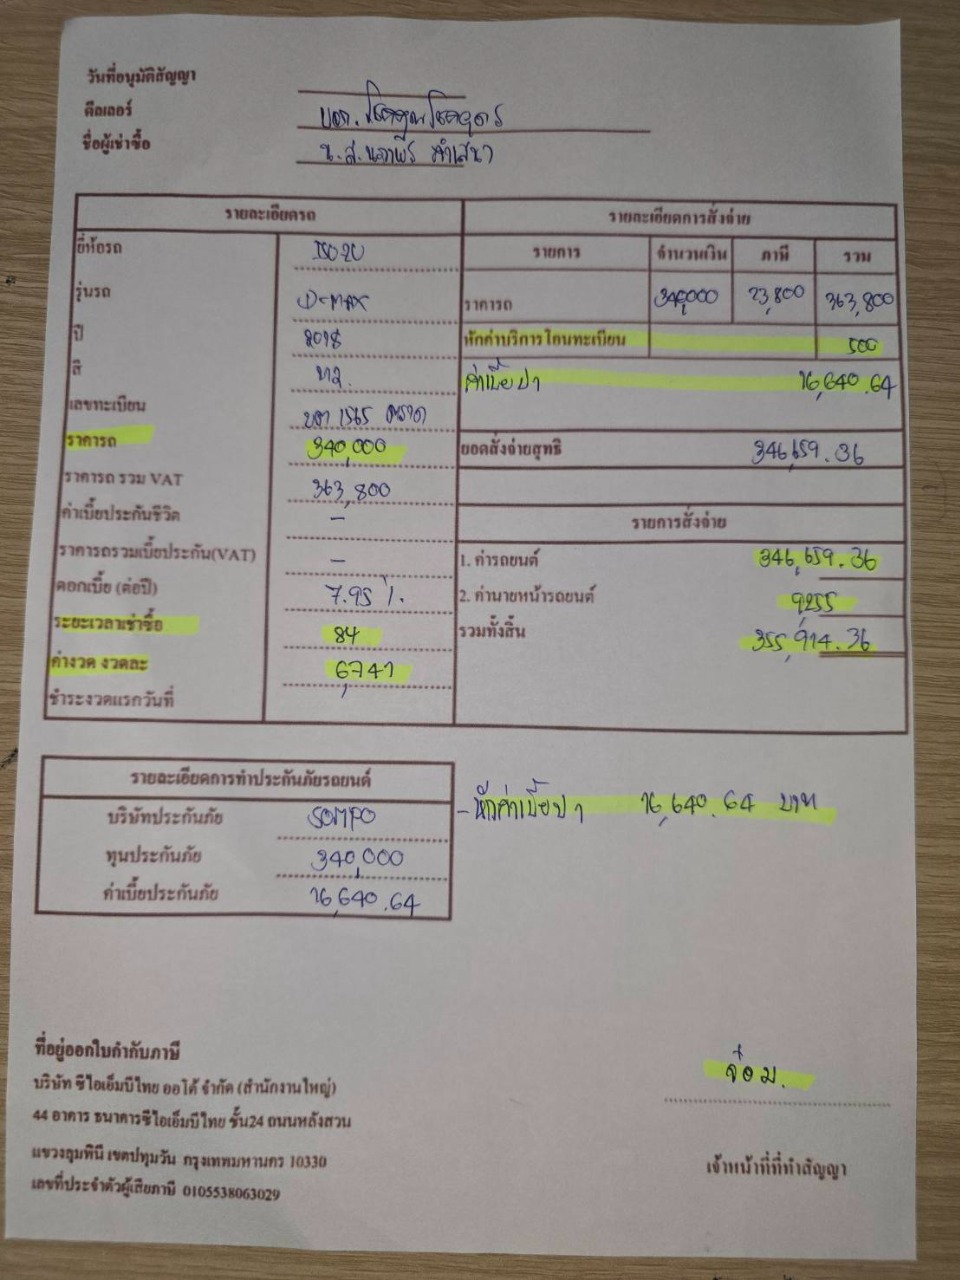 วันที่อนุมัติสัญญา
ดีลเลอร์ บจก.
ชื่อผู้เช่าซื้อ น.ส.
รายละเอียดรถ
ยี่ห้อรถ ISUZU
รุ่นรถ D-MAX
ปี 2018
สี เทา
เลขทะเบียน 1565 ตราด
ราคารถ 340,000
ราคารถ รวม VAT 363,800
ค่าเบี้ยประกันชีวิต -
ราคารถรวมเบี้ยประกัน(VAT) -
ดอกเบี้ย (ต่อปี) 7.95 %
ระยะเวลาเช่าซื้อ 84
ค่างวด งวดละ 6,741
ชำระงวดแรกวันที่
รายละเอียดการสั่งจ่าย
รายการ จำนวนเงิน ภาษี รวม
ราคารถ 340,000 23,800 363,800
หักค่าบริการโอนทะเบียน 500
ค่าเบี้ย ป1 16,640.64
ยอดสั่งจ่ายสุทธิ 346,659.36
รายการสั่งจ่าย
1. ค่ารถยนต์ 346,659.36
2. ค่านายหน้ารถยนต์ 9,255
รวมทั้งสิ้น 355,914.36
รายละเอียดการทำประกันภัยรถยนต์
บริษัทประกันภัย SOMPO
ทุนประกันภัย 340,000
ค่าเบี้ยประกันภัย 16,640.64
- หักค่าเบี้ย ป1 16,640.64 บาท
ที่อยู่ออกใบกำกับภาษี
บริษัท ซีไอเอ็มบีไทย ออโต้ จำกัด (สำนักงานใหญ่)
44 อาคาร ธนาคารซีไอเอ็มบีไทย ชั้น24 ถนนหลังสวน
แขวงลุมพินี เขตปทุมวัน กรุงเทพมหานคร 10330
เลขที่ประจำตัวผู้เสียภาษี 0105538063029
จ๋อม.
เจ้าหน้าที่ที่ทำสัญญา